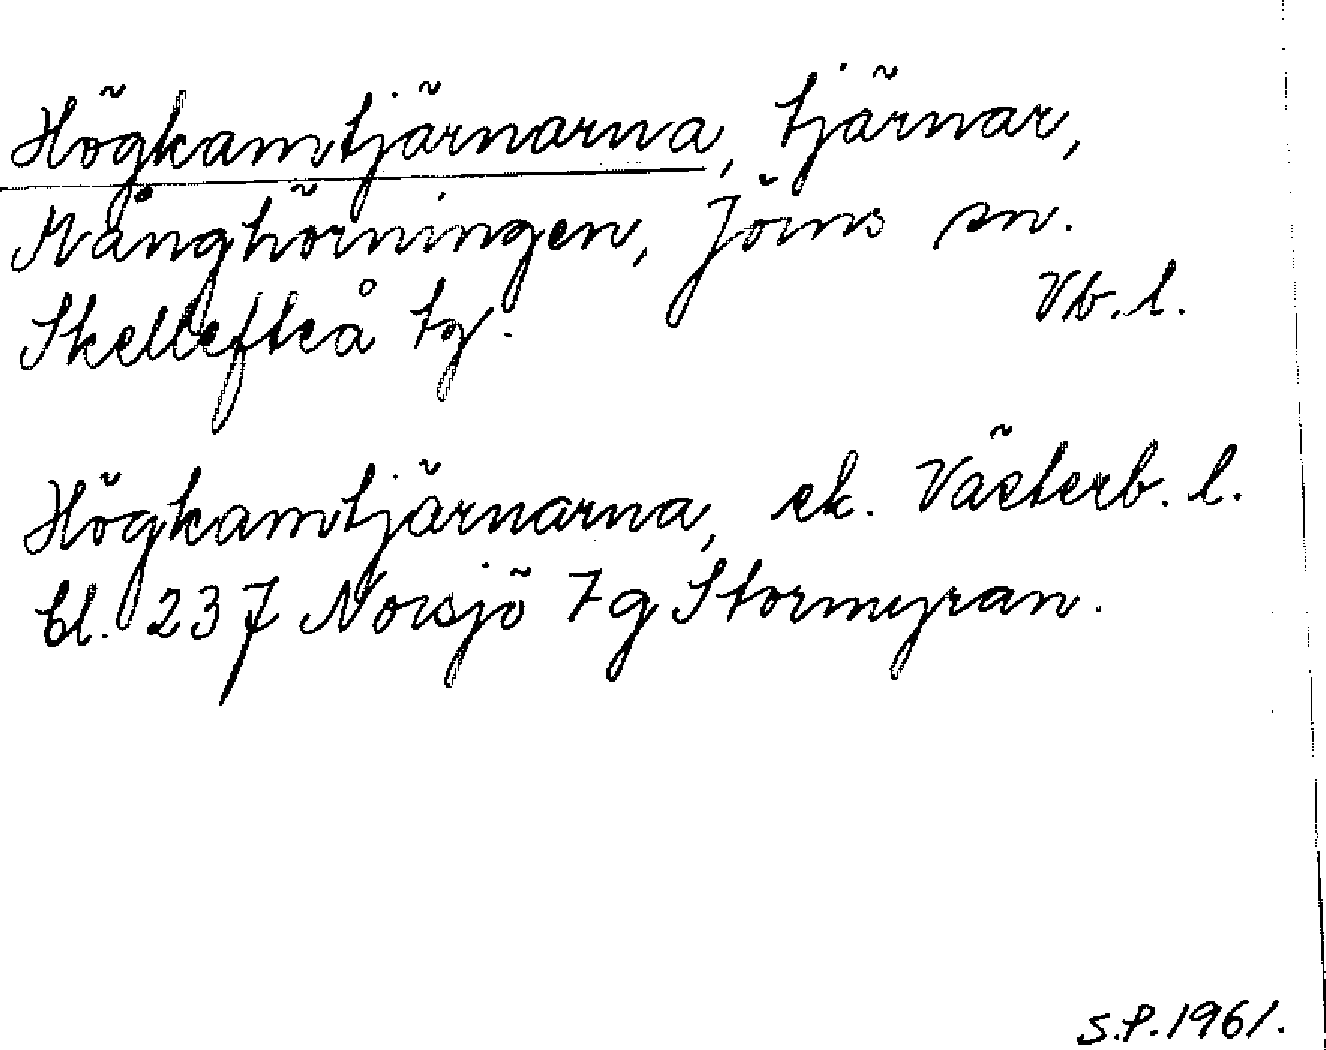 Högkamtjärnarna, tjärnar,
Månghörningen, Jörns sn.
Vb. l.
Skellefteå tg.
Högkamtjärnarna, ek. Västerb. l.
bl. 237 Norsjö 7 g Stormyran.
S.P. 1961.